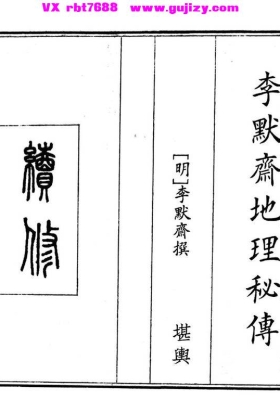 VX rbt7688 www.gujizy.com
李默齋地理秘傳
[明]李默齋撰 堪輿
續修